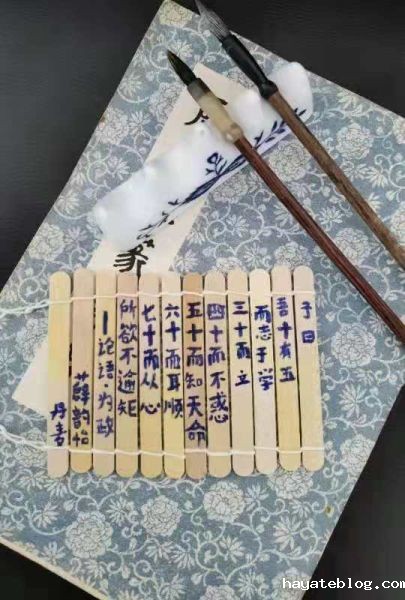 子曰
吾十有五
而志于学
三十而立
四十而不惑
五十而知天命
六十而耳顺
七十而从心
所欲不逾矩
—论语·为政
薛韵怡
丹青
hayateblog.com